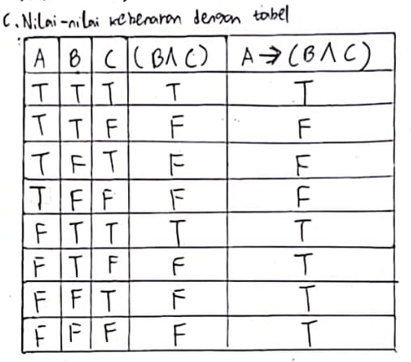 C. Nilai-nilai kebenaran dengan tabel
A B C (B∧C) A→(B∧C)
T T T T T
T T F F F
T F T F F
T F F F F
F T T T T
F T F F T
F F T F T
F F F F T